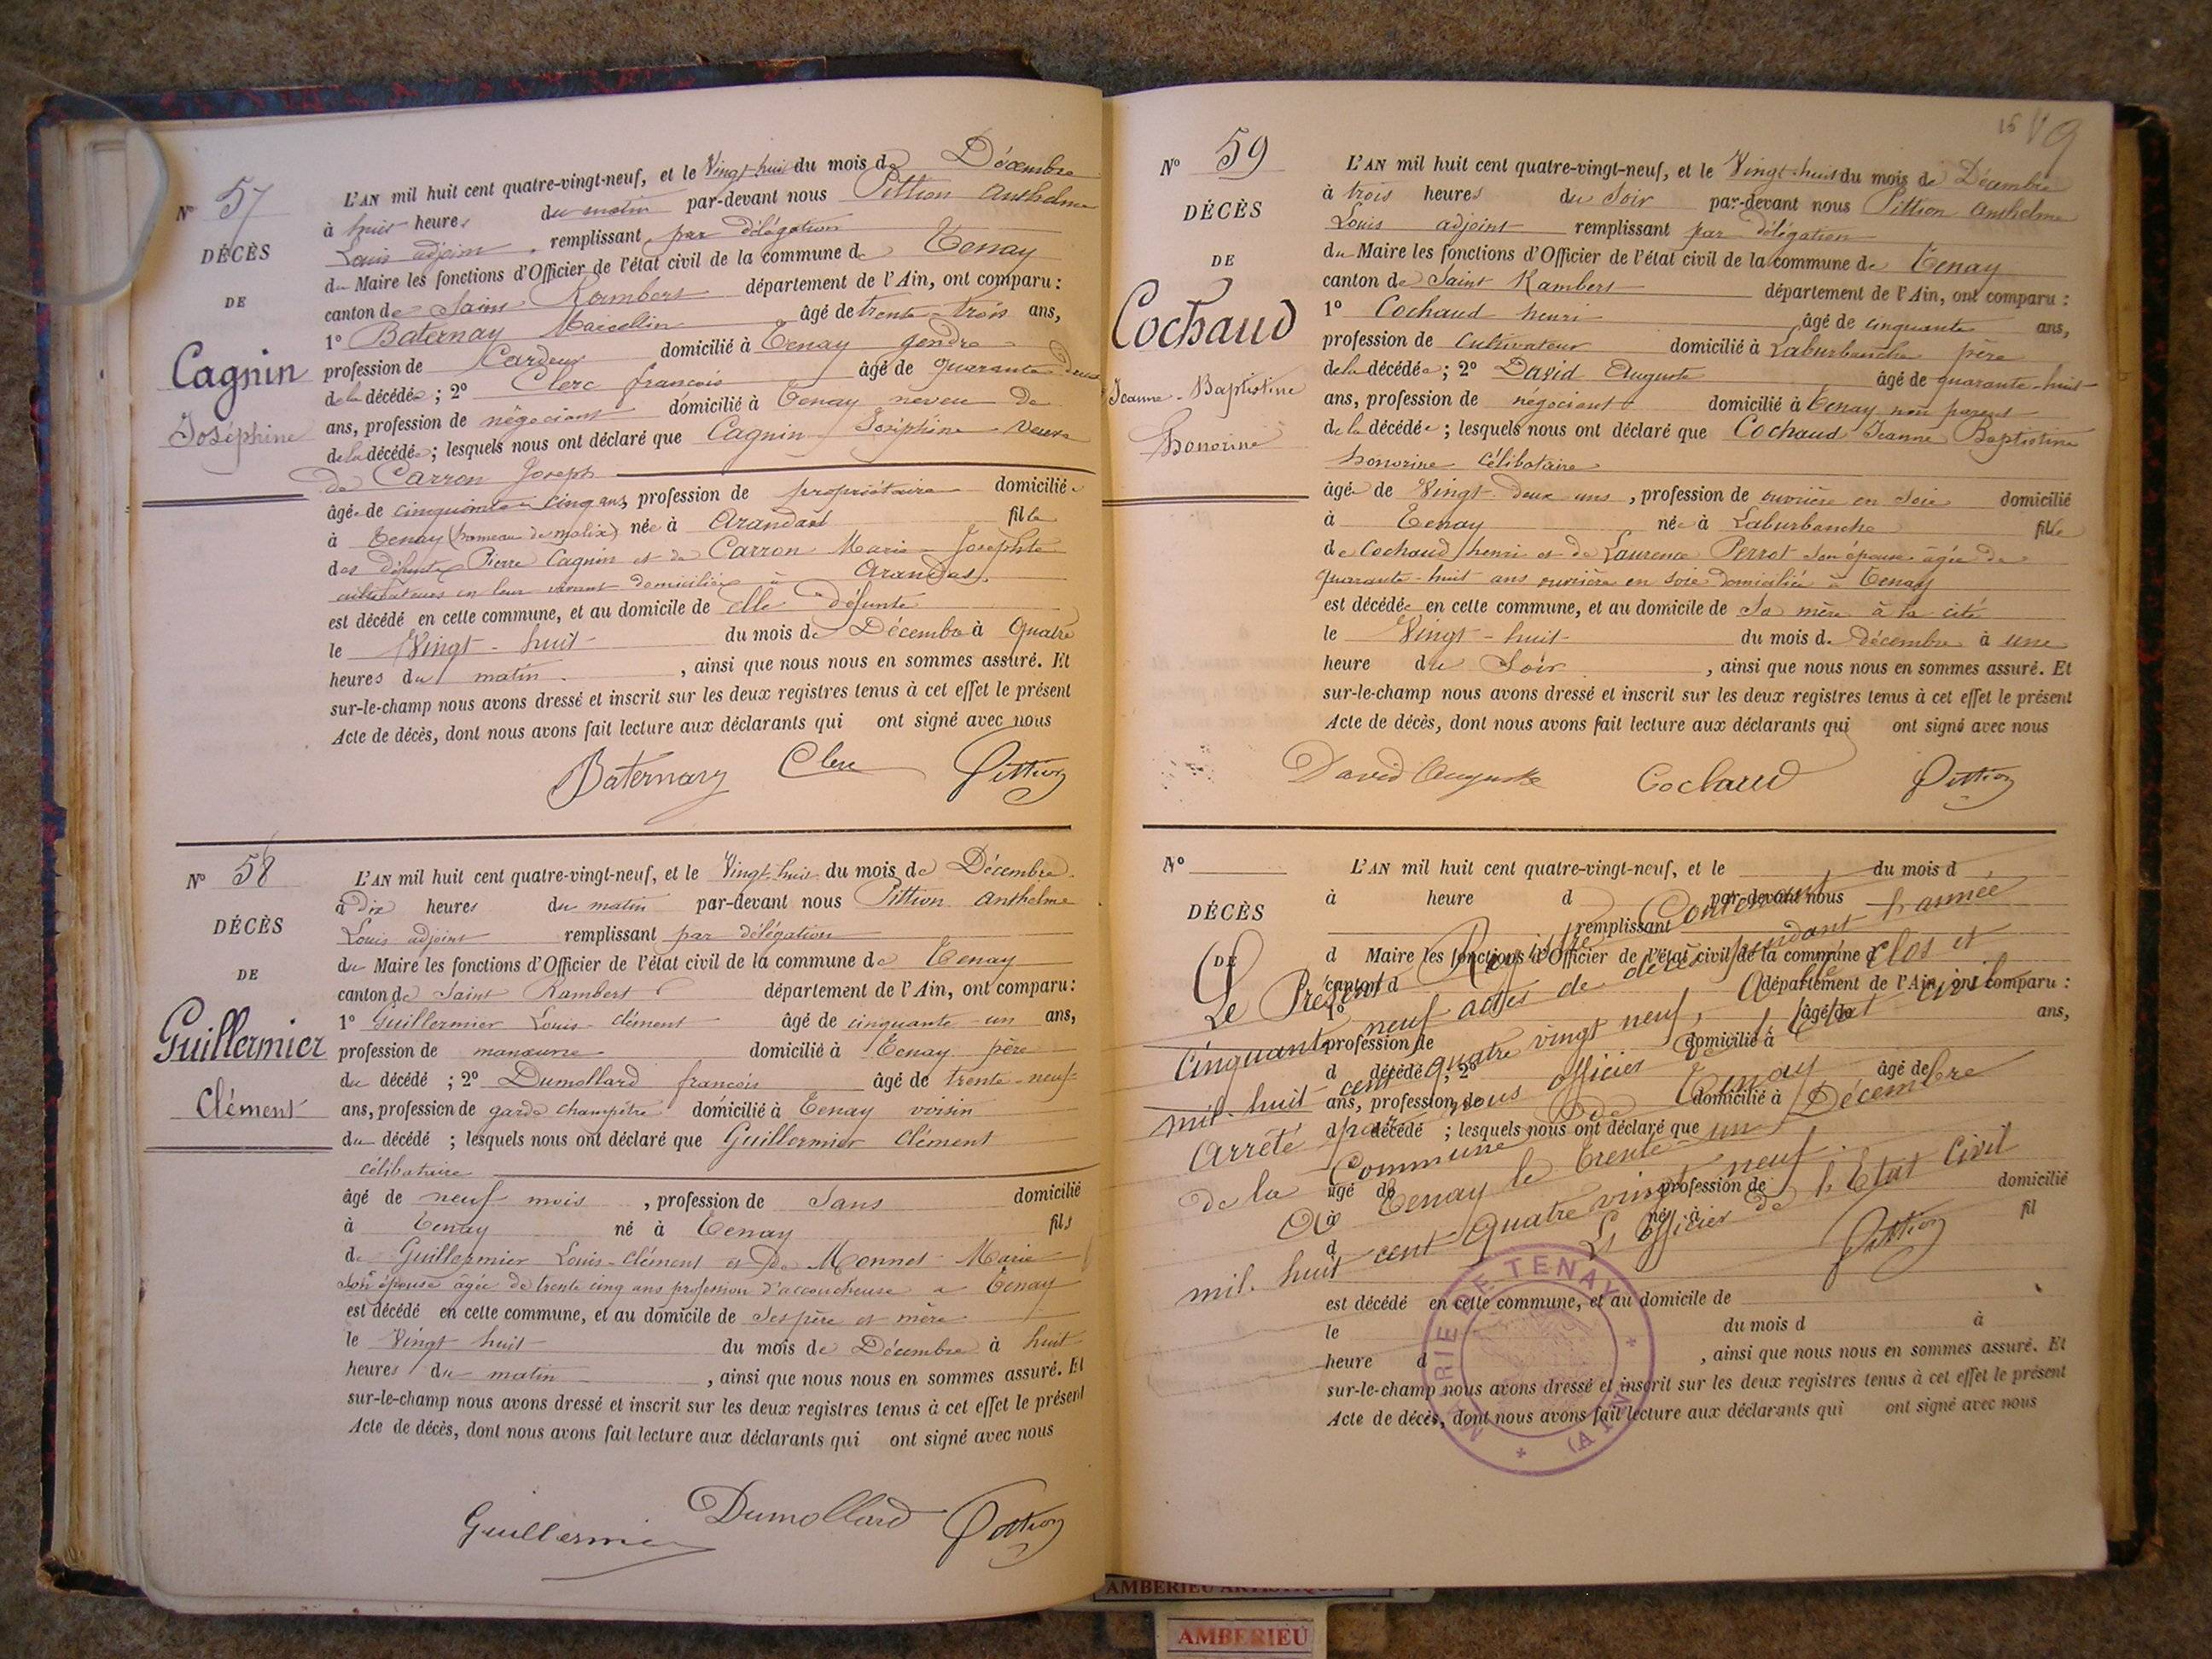 N° 57
DÉCÈS
DE
Cagnin
Joséphine
L'AN mil huit cent quatre-vingt-neuf, et le Vingt-huit du mois de Décembre
à huit heures du matin par-devant nous Pittion Anthelme
Louis adjoint, remplissant par délégation
du Maire les fonctions d'Officier de l'état civil de la commune de Tenay
canton de Saint Rambert département de l'Ain, ont comparu :
1° Baternay Marcellin âgé de trente-trois ans,
profession de Cardeur domicilié à Tenay gendre
de la décédée ; 2° Clerc françois âgé de quarante deux
ans, profession de négociant domicilié à Tenay neveu de
de la décédée ; lesquels nous ont déclaré que Cagnin Joséphine Veuve
de Carron Joseph
âgée de cinquante cinq ans, profession de propriétaire domiciliée
à Tenay (hameau de malix) née à Arandas fille
des défunts Pierre Cagnin et de Carron Marie Josephte
cultivateurs en leur vivant domiciliés à Arandas.
est décédé en cette commune, et au domicile de elle défunte
le Vingt-huit du mois de Décembre à quatre
heures du matin, ainsi que nous nous en sommes assuré. Et
sur-le-champ nous avons dressé et inscrit sur les deux registres tenus à cet effet le présent
Acte de décès, dont nous avons fait lecture aux déclarants qui ont signé avec nous
Baternay Clerc Pittion
N° 58
DÉCÈS
DE
Guillermier
Clément
L'AN mil huit cent quatre-vingt-neuf, et le Vingt-huit du mois de Décembre
à Dix heures du matin par-devant nous Pittion Anthelme
Louis adjoint remplissant par délégation
du Maire les fonctions d'Officier de l'état civil de la commune de Tenay
canton de Saint Rambert département de l'Ain, ont comparu :
1° Guillermier Louis-Clément âgé de cinquante-un ans,
profession de manœuvre domicilié à Tenay père
du décédé ; 2° Dumollard françois âgé de trente-neuf
ans, profession de garde champêtre domicilié à Tenay voisin
du décédé ; lesquels nous ont déclaré que Guillermier Clément
célibataire
âgé de neuf mois, profession de Sans domicilié
à Tenay né à Tenay fils
de Guillermier Louis-Clément et de Monnet Marie
Son épouse âgée de trente cinq ans profession d'accoucheuse a Tenay
est décédé en cette commune, et au domicile de Ses père et mère
le Vingt huit du mois de Décembre à huit
heures du matin, ainsi que nous nous en sommes assuré. Et
sur-le-champ nous avons dressé et inscrit sur les deux registres tenus à cet effet le présent
Acte de décès, dont nous avons fait lecture aux déclarants qui ont signé avec nous
Guillermier Dumollard Pittion
N° 59
DÉCÈS
DE
Cochaud
Jeanne-Baptistine
honorine
L'AN mil huit cent quatre-vingt-neuf, et le Vingt-huit du mois de Décembre
à trois heures du Soir par-devant nous Pittion Anthelme
Louis adjoint remplissant par délégation
du Maire les fonctions d'Officier de l'état civil de la commune de Tenay
canton de Saint Rambert département de l'Ain, ont comparu :
1° Cochaud henri âgé de cinquante ans,
profession de cultivateur domicilié à Laburbanche père
de la décédée ; 2° David Auguste âgé de quarante-huit
ans, profession de négociant domicilié à Tenay non parent
de la décédée ; lesquels nous ont déclaré que Cochaud Jeanne Baptistine
honorine célibataire
âgée de Vingt-deux ans, profession de ouvrière en Soie domicilié
à Tenay née à Laburbanche fille
de Cochaud henri et de Laurence Perrot Son épouse âgée de
quarante-huit ans ouvrière en soie domiciliée à Tenay
est décédée en cette commune, et au domicile de Sa mère à la cité
le Vingt-huit du mois d. décembre à une
heure du Soir, ainsi que nous nous en sommes assuré. Et
sur-le-champ nous avons dressé et inscrit sur les deux registres tenus à cet effet le présent
Acte de décès, dont nous avons fait lecture aux déclarants qui ont signé avec nous
David Auguste Cochaud Pittion
N°
DÉCÈS
DE
L'AN mil huit cent quatre-vingt-neuf, et le du mois d
à heure d par-devant nous
remplissant
d Maire les fonctions d'Officier de l'état civil de la commune d
canton d département de l'Ain, ont comparu :
1° âgé de ans,
profession de domicilié à
d décédé ; 2° âgé de
ans, profession de domicilié à
d décédé ; lesquels nous ont déclaré que
âgé de profession de domicilié
à né à fil
d
est décédé en cette commune, et au domicile de
le du mois d à
heure d, ainsi que nous nous en sommes assuré. Et
sur-le-champ nous avons dressé et inscrit sur les deux registres tenus à cet effet le présent
Acte de décès, dont nous avons fait lecture aux déclarants qui ont signé avec nous
Le Présent Registre Contenant
Cinquante neuf actes de décès pendant l'année
mil-huit cent quatre vingt neuf, a été clos et
Arrêté par nous officier de l'Etat civil
de la Commune de Tenay
A Tenay le trente-un Décembre
mil-huit cent quatre vingt neuf.
L'officier de l'Etat Civil
Pittion
MAIRIE DE TENAY
(AIN)
AMBERIEU ARTISTIQUE
AMBERIEU